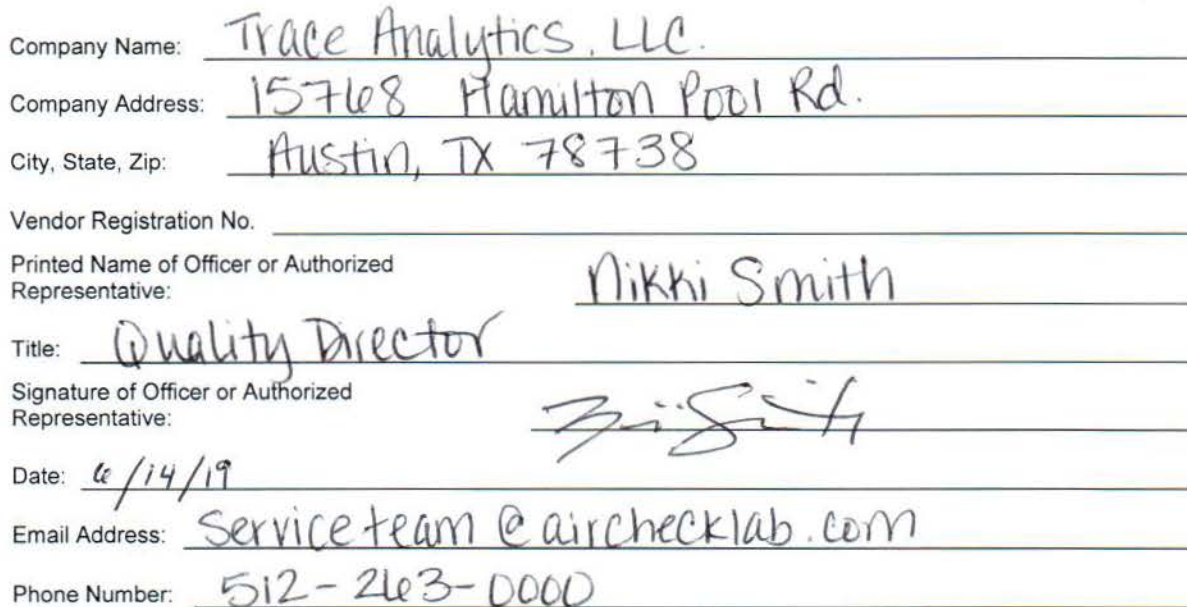 Company Name: Trace Analytics, LLC.
Company Address: 15768 Hamilton Pool Rd.
City, State, Zip: Austin, TX 78738
Vendor Registration No.
Printed Name of Officer or Authorized
Representative: Nikki Smith
Title: Quality Director
Signature of Officer or Authorized
Representative:
Date: 6/14/19
Email Address: Serviceteam@airchecklab.com
Phone Number: 512-263-0000